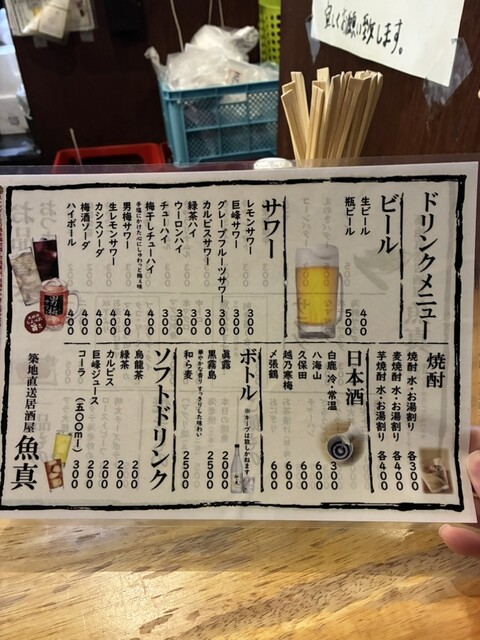 宜しくお願い致します。
ドリンクメニュー
ビール
生ビール 400
瓶ビール 500
サワー
レモンサワー 300
巨峰サワー 300
グレープフルーツサワー 300
カルピスサワー 300
緑茶ハイ 300
ウーロンハイ 300
チューハイ 300
梅干しチューハイ 400
男梅サワー 400
生レモンサワー 400
カシスソーダ 400
梅酒ソーダ 400
ハイボール 400
焼酎
焼酎 水・お湯割り 各300
麦焼酎 水・お湯割り 各400
芋焼酎 水・お湯割り 各400
日本酒
白鹿 冷・常温 300
八海山 600
久保田 600
越乃寒梅 600
〆張鶴 600
ボトル
※キープは致しかねます
眞露 2000
黒霧島 2500
華やかな香り すっきりした味わい
和ら麦 2500
ソフトドリンク
烏龍茶 200
緑茶 200
カルピス 200
巨峰ジュース 200
コーラ (五〇〇ml) 300
築地直送居酒屋 魚真